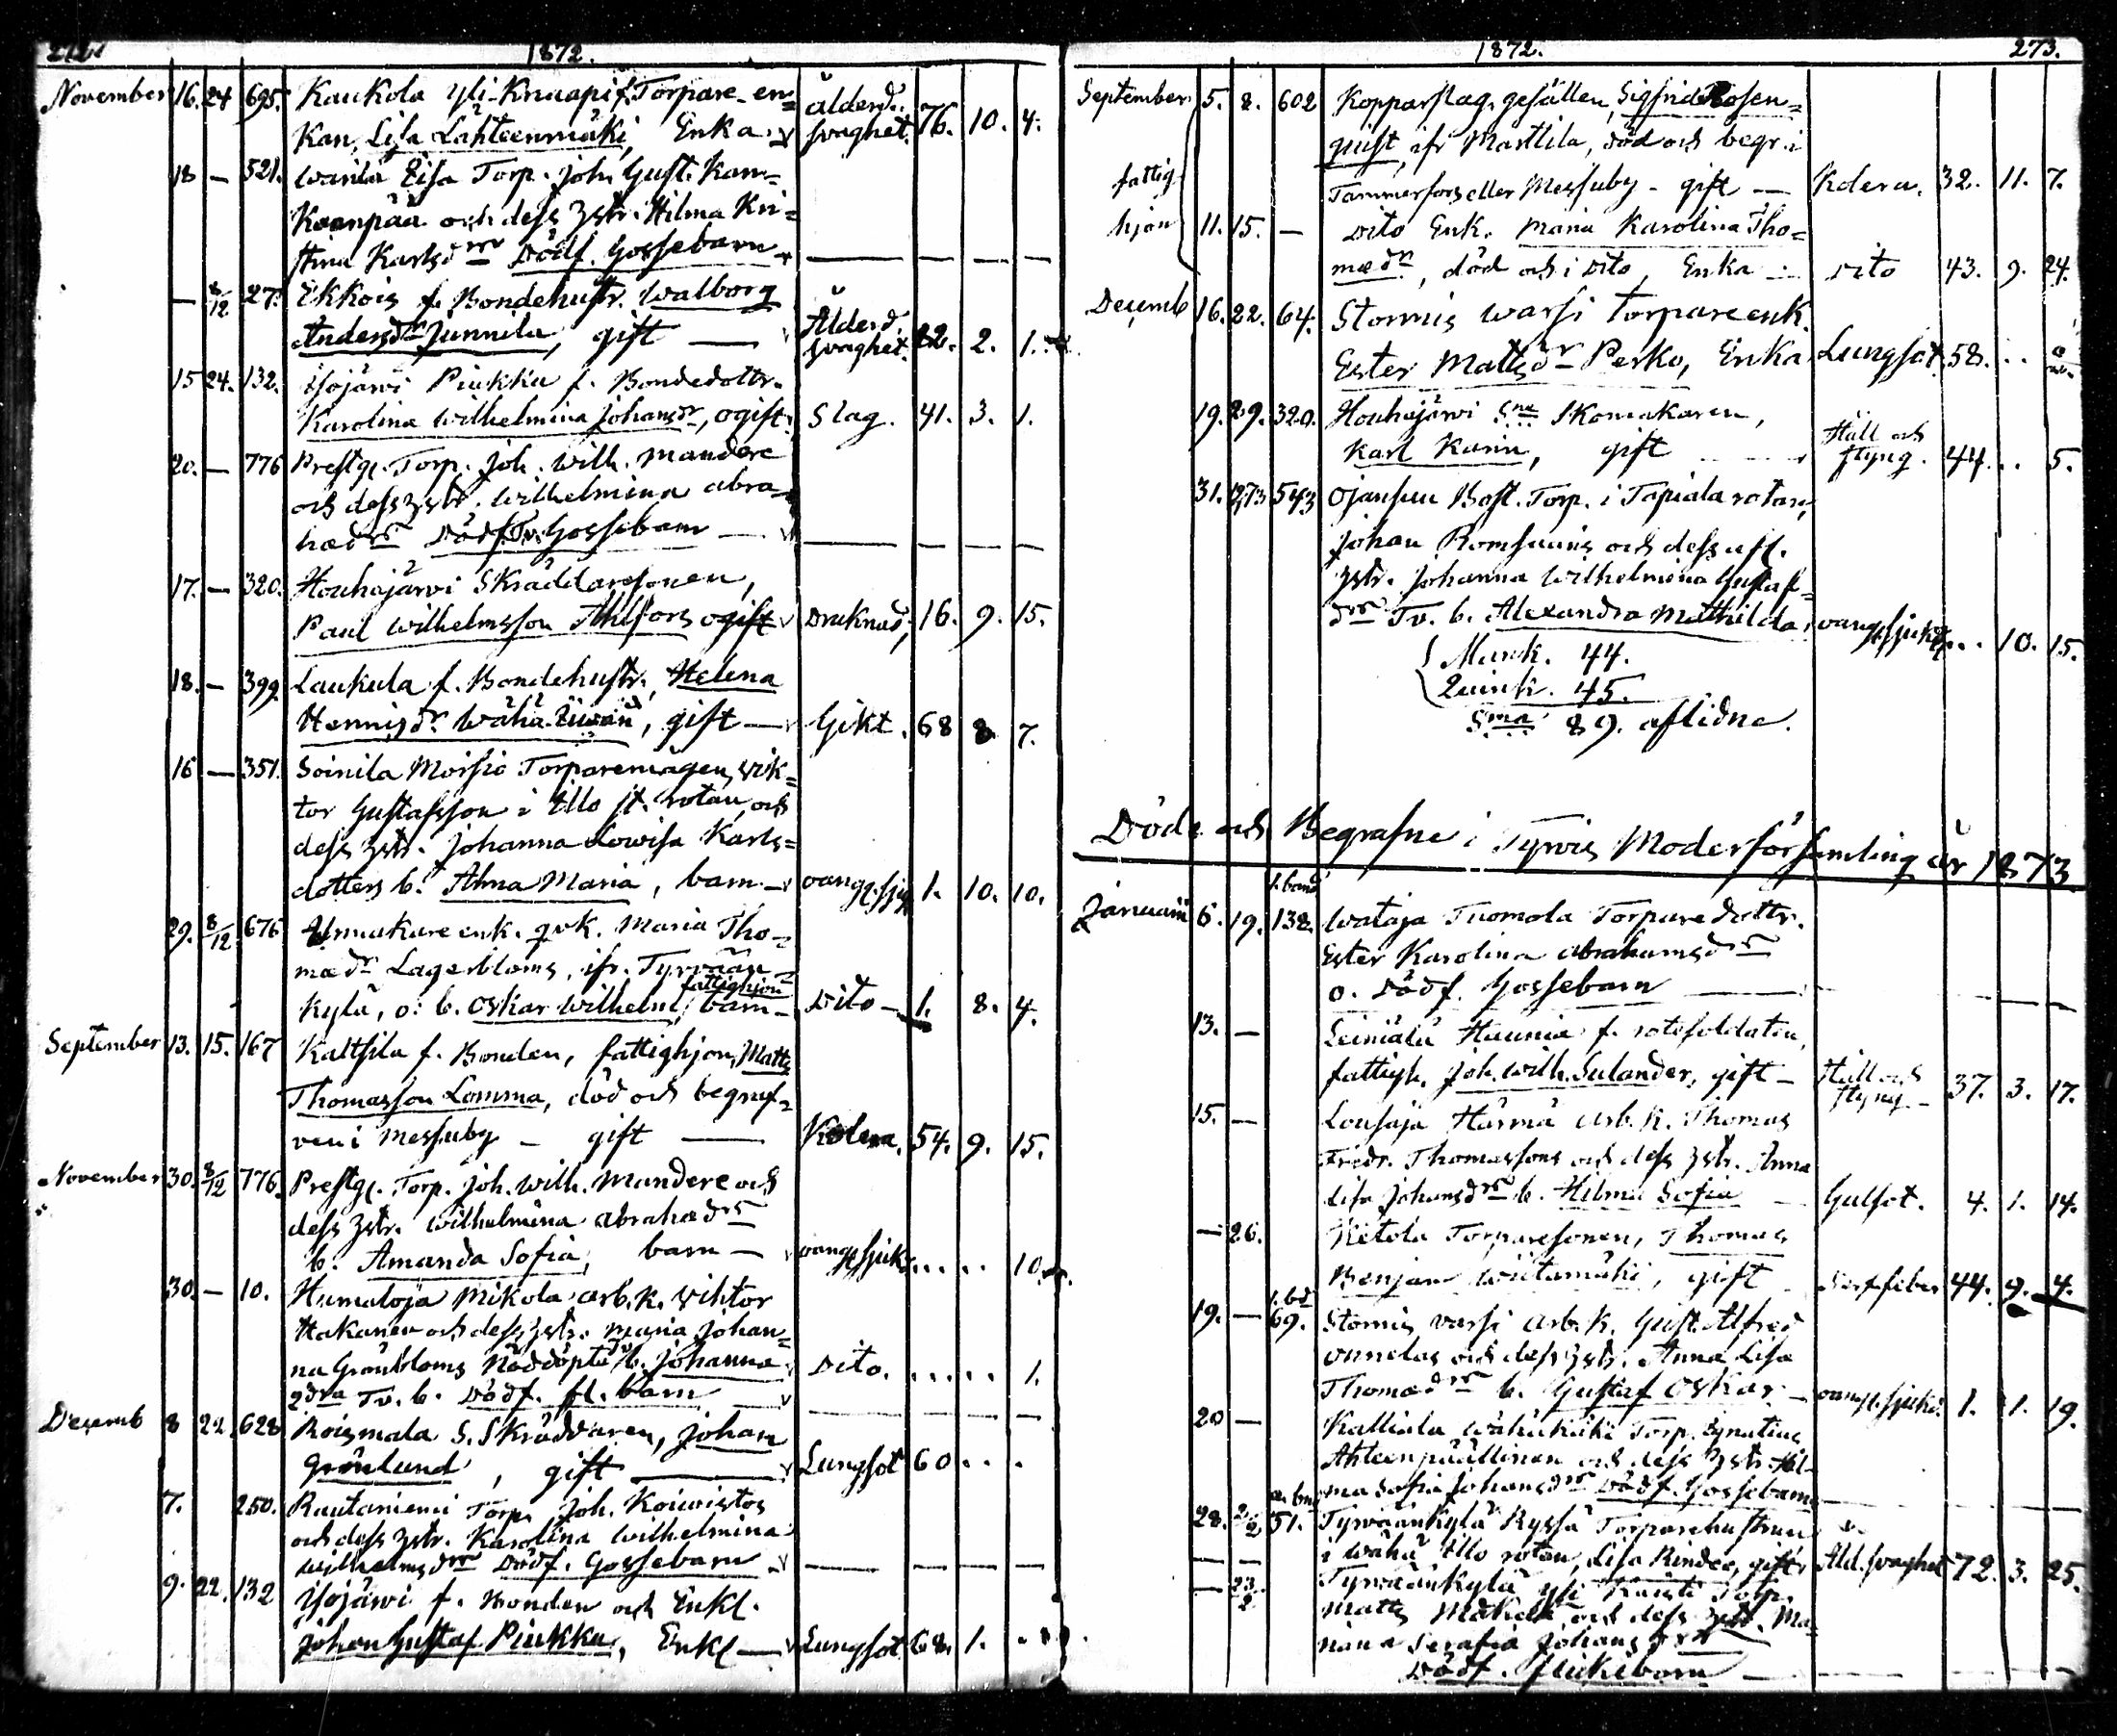 272. 1872.
November 16. 24 695. Kaukola Yli-Knaapi f. Torpare-en=
kan, Lisa Lähteenmäki, Enka. Ålderd. svaghet. 76. 10. 4.
18 — 521. Torp. Joh. Gust. Kan=
Koanpää och dess hstr. Hilma Kri=
stina Karlsdrs Dödf. Gossebarn — — — —
— 8/12 27. Ekkois f. Bondehustr. Walborg
Andersdr Junnila, gift — Ålderd. svaghet. 2. 1.
15 24. 132. Isojärvi Piukku f. Bondedottr.
Karolina Wilhelmina Johansdr, ogift. Slag. 41. 3. 1.
20. — 776 Prestg. Torp. Joh. Wilh. Mandere
och dess hstr. Wilhelmina Abra=
hadrs Dödf. Tv. Gossebarn — — — — —
17. — 320. Houhajärvi Skräddaresonen,
Paul Wilhelmsson Ahlfors ogift Druknad, 16. 9. 15.
18. — 399. Laukula f. Bondehustr. Helena
Henricsdr, gift — Gikt. 68 8 7.
16 — 351. Soinila Moisio Torparemågen, Vik=
tor Gustafsson i Illo st. rotan, och
dess hstr. Johanna Lowisa Karls=
dotters b. Anna Maria, barn — 1. 10. 10.
29. 8/12 676 Urmakare enk. qvk. Maria Tho=
madr Lagerbloms, ifr. Tyrvään
fattighjon
kylä, o: b. Oskar Wilhelm, barn — Dito — 1. 8. 4.
September 13. 15. 167 Kaltsila f. Bonden, fattighjon, Matts
Thomasson Lomma, död och begraf=
ven i Messuby — gift — Kolera. 54. 9. 15.
November 30. 8/12 776. Prestg. Torp. Joh. Wilh. Mandere och
dess hstr. Wilhelmina Abrahadrs
b. Amanda Sofia, barn — vangsjuk. . . . . 10.
30. — 10. Humaloja Mikola arb. k. Viktor
Hakanen och dess hstr. Maria Johan=
na Grönbloms Nöddöpta b. Johanna Dito. . . . . . 1.
2dra Tv. b. Dödf. fl. barn — — — —
Decemb 8 22 628 Roismala S. Skräddaren, Johan
Grönlund, gift — Lungsot 60 . . .
7. 250. Rautaniemi Torp. Joh. Koivistos
och dess hstr. Karolina Wilhelmina
Wilhelmsdrs Dödf. Gossebarn — — — —
9. 22. 132 Isojärvi f. Bonden och Enkl.
Johan Gustaf Piukku, Enkl — Lungsot 68. 1. . .
1872. 273.
September 5. 8. 602 Kopparslag. gesällen, Sigfrid Rosen=
quist, ifr Marttila, död och begr. i
fattig- Tammerfors eller Messuby — gift — Kolera. 32. 11. 7.
hjon 11. 15. — Dito Enk. Maria Karolina Tho=
madr, död och i Dito, Enka — Dito 43. 9. 24.
Decemb 16. 22. 64. Stormis Warsi Torpareenk.
Ester Mattsdr Perko, Enka Lungsot 58. . .
19. 29. 320. Houhajärvi Skomakaren,
Karl Karin, gift Håll och styng. 44. . . 5.
31. 543 Ojansuu Bost. Torp. i Tapiala rotan,
Johan Romsuins och dess
hstr. Johanna Wilhelmina Gustaf=
drs Tv. b. Alexandra Mathilda, vangsjuk. . . 10. 15.
Mank. 44.
Quink. 45.
Sma 89. aflidne.
Döde och Begrafne i Tyrvis Moderförsamling år 1873
1. band
Januari 6. 19. 138. Wataja Tuomola Torpare dottr.
Ester Karolina Abrahamsdrs
o. Dödf. Gossebarn — — — —
13. — Leiniälä Haunia f. rotesoldaten,
fattigh. Joh. Wilh. Sulander, gift — Håll och styng — 37. 3. 17.
15. — Lousaja Härmä arb. k. Thomas
Fredr. Thomassons och dess hstr. Anna
Lisa Johansdrs b. Hilma Sofia — Gulsot. 4. 1. 14.
— 26. Ketola Torparesonen, Thomas
Benjam Wiitamäki, gift 44. 9. 4.
1. bd
19. — 69. Stormis Varsi arb. k. Gust. Alfred
Onnelas och dess hstr. Anna Lisa
Thomadrs b. Gustaf Oskar — vangsjuk. 1. 1. 19.
20 — Kalliala Wähäkäki Torp. Ignatius
Ahteenpäällinen och dess hstr. Hil=
ma Sofia Johansdrs Dödf. Gossebarn — — —
28. 2/2 51. Tyrväänkylä Ryssä Torparehustrun
i Wähä Illo rotan, Lisa, gift Åld. svaghet 72. 3. 25.
— 23/2 Tyrväänkylä Yli Torp.
Matts och dess hstr. Ma=
riana Serafia Johansdrs
Dödf. flickebarn — — — —